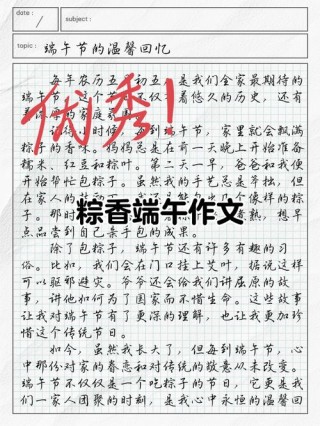 date:
subject:
topic: 端午节的温馨回忆
每年农历五月初五,是我们全家最期待的
端午节。这个节 不仅 着悠久的历史,还有
家庭
优秀!
时候,每到端午节,家里就会飘满
粽子的香味。妈妈总是在前一天晚上开始准备
糯米、红豆和粽叶。第二天一早,爸爸和我便
开始帮忙包粽子。虽然我的手艺总是笨拙,但
在家人的
粽香端午作文
子。那时
点品尝到自己亲手包的成果。
除了包粽子,端午节还有许多有趣的习
俗。比如,我们会在门口挂上艾叶,据说这样
可以驱邪避灾。爷爷还会给我们讲屈原的故
事,讲他如何为了国家而不惜生命。这些故事
让我对端午节有了更深的理解,也让我更加珍
惜这个传统节日。
如今,虽然我长大了,但每到端午节,心
中那份对家的眷恋和对传统的敬意从未改变。
端午节不仅仅是一个吃粽子的节日,它更是我
们一家人团聚的时刻,是我心中永恒的温馨回